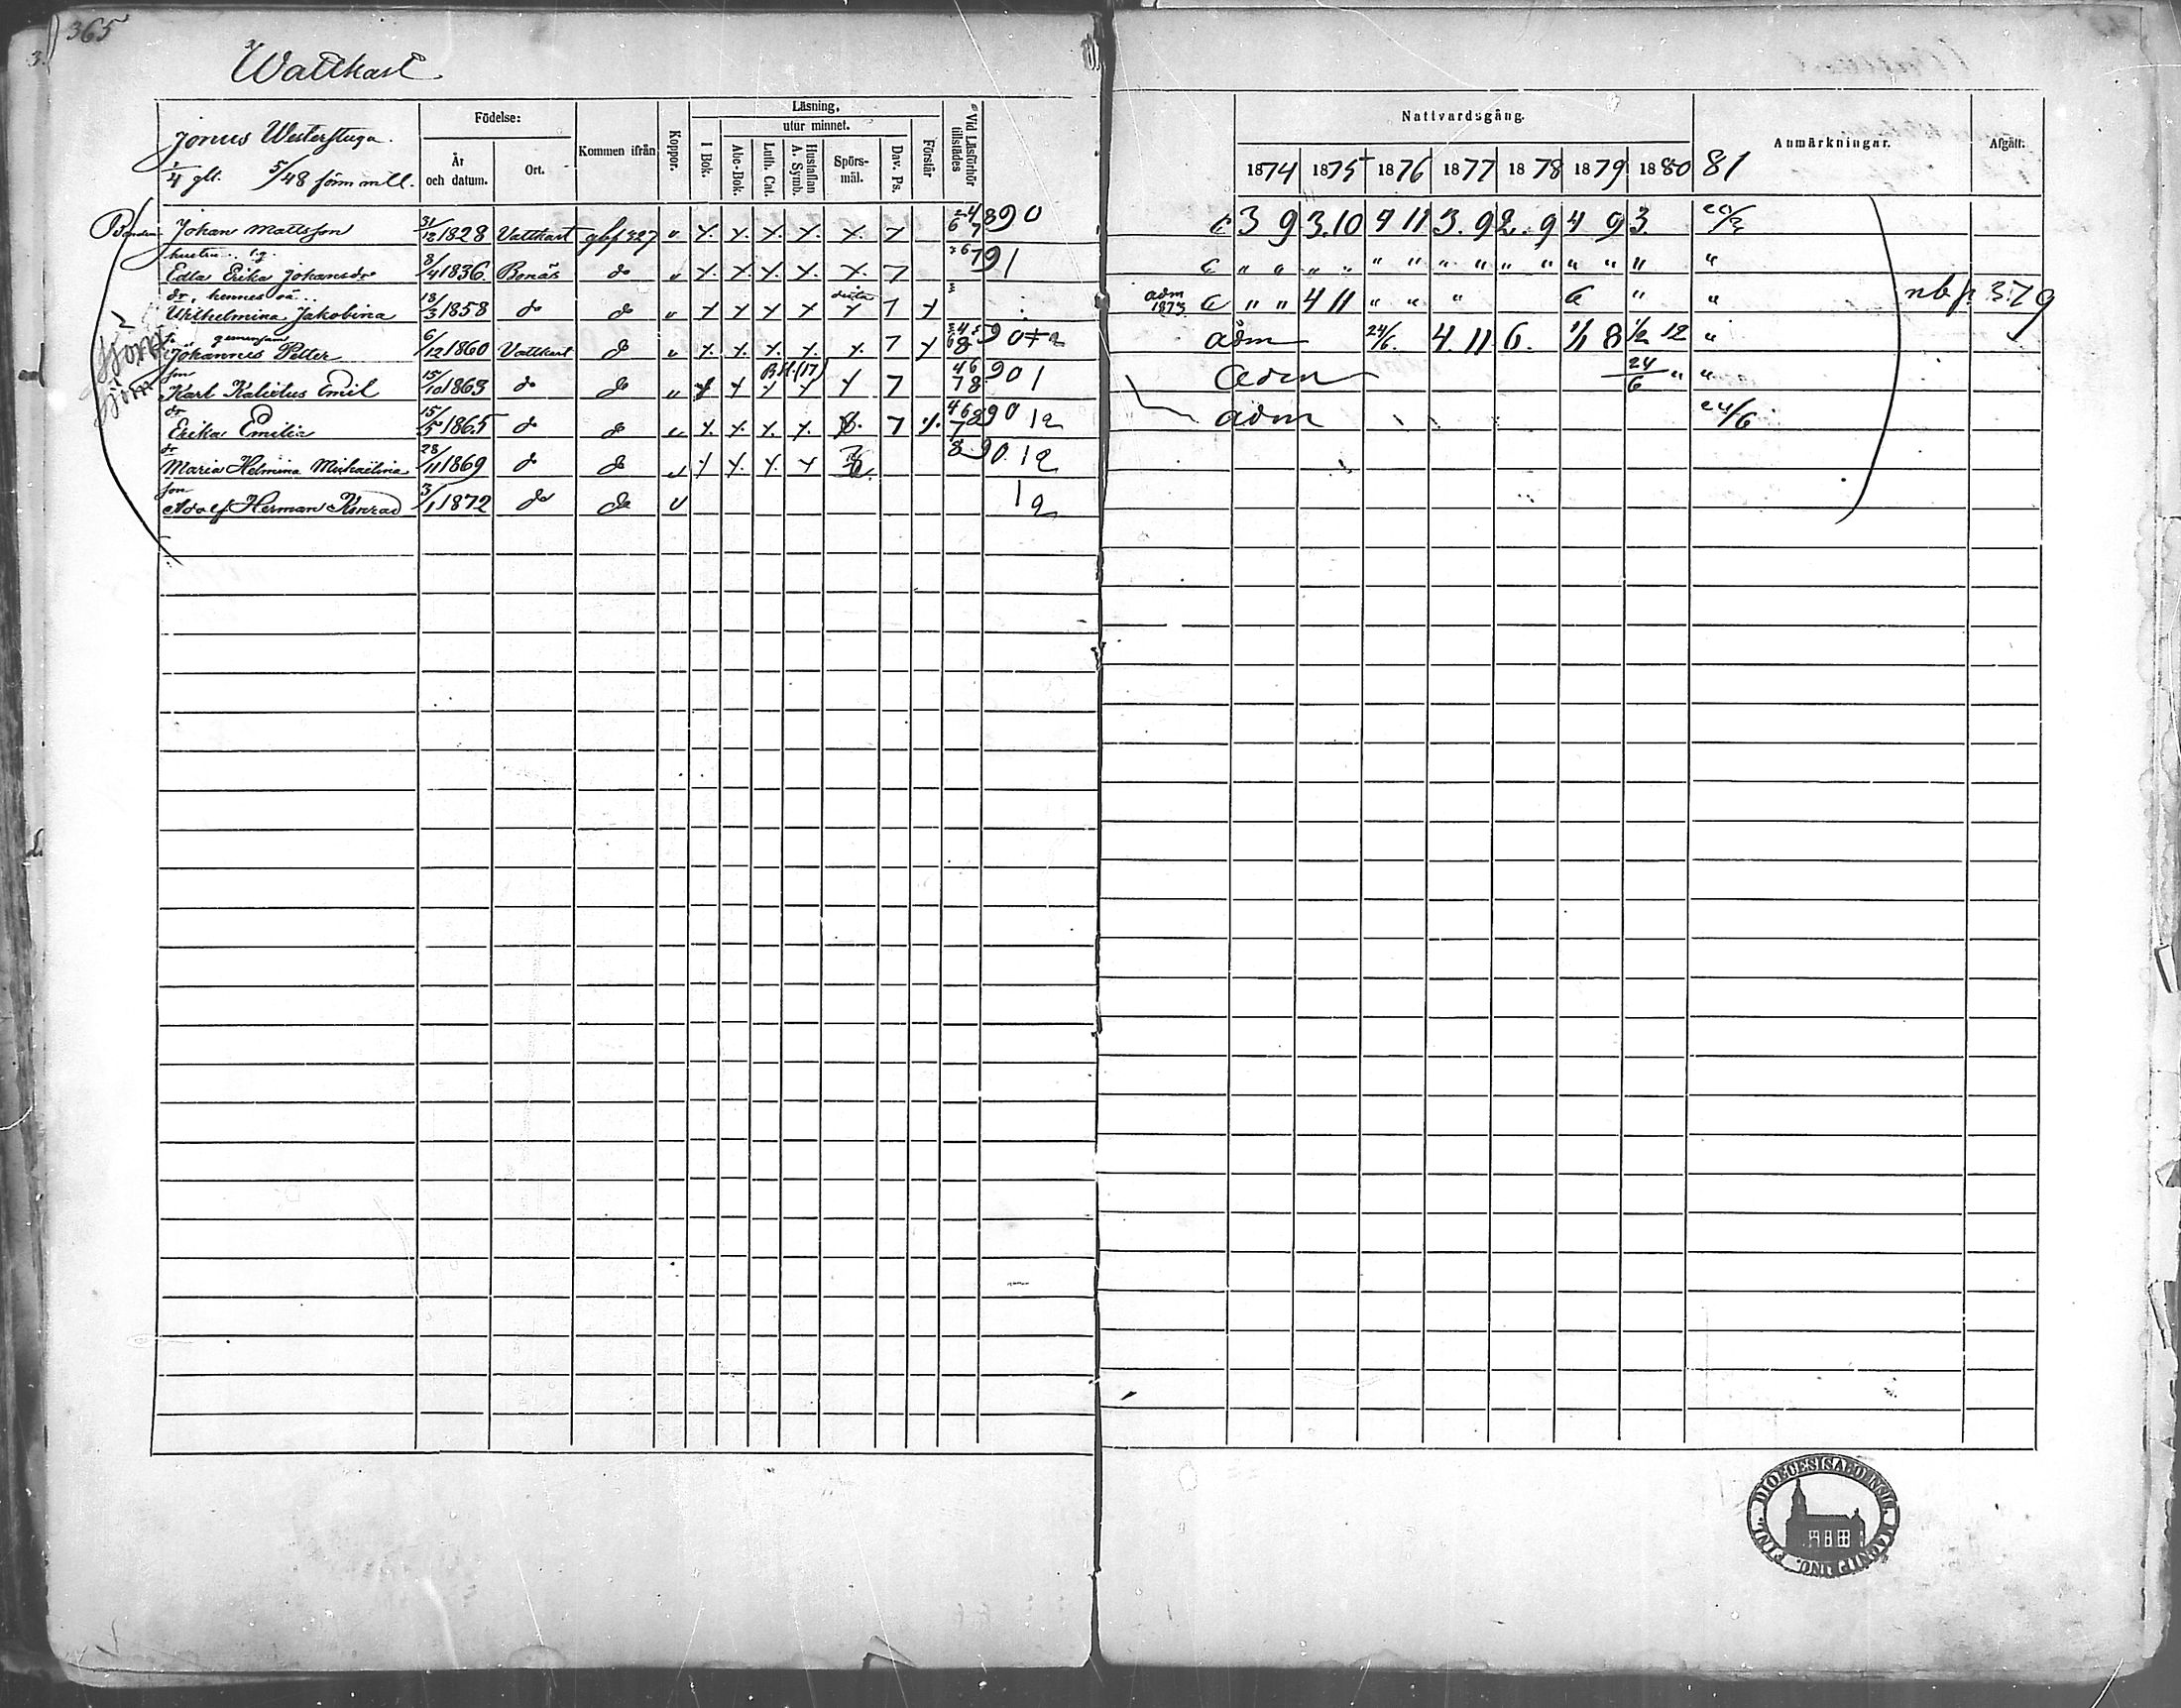 365
Wattkast
Jonus Westerstuga.
1/4 glt. 5/48 förm mtl.
Födelse:
År och datum.
Ort.
Kommen ifrån
Koppor.
Läsning,
utur minnet.
I Bok.
Abc-Bok.
Luth. Cat.
Hustaflan A. Symb.
Spörs-mål.
Dav. Ps.
Förstår
Vid Läsförhör tillstädes
Nattvardsgång.
1874 1875 1876 1877 1878 1879 1880 81
Anmärkningar.
Afgått.
Bonden Johan Mattsson 31/12 1828 Vattkast gbf 327 v x. x. x. x. x. 7 890 c 3 9 3.10 4 11 3.9 2.9 4 9 3.
hustru
Edla Erika Johansdr 8/4 1836. Bonäs do " x. x. x. x. x. 7 91 c " " " " " " " " " " " " " "
dr, hennes oä
Wilhelmina Jakobina 18/3 1858 do do " x x x x x 7 x adm 1873 c " " 4 11 " " " 6 " " nb p. 379
gemensam
Johannes Petter 6/12 1860 Vattkast do " x. x. x. x. x. 7 x 90 adm 24/6. 4.11 6. 1/2 12 "
son
Karl Kalixtus Emil 15/10 1863 do do " x x x x x 7 46 78 901 adm 24/6 " "
dr
Erika Emilia 15/5 1865 do do " x. x. x. x. 7 x. 90 12 adm 24/6
dr
Maria Helmina Mikaelina 28/11 1869 do do v x x. x. x 8. 90. 12
son
Adolf Herman Konrad 3/1 1872 do do v 12
FINL. DIOECESIS ABOENSIS. MAGNI PRINC.